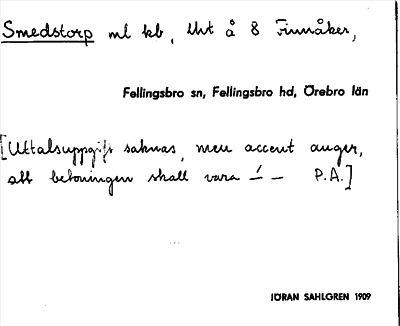 Smedstorp ml kb, Uvt å 8 Finnåker,
Fellingsbro sn, Fellingsbro hd, Örebro län
[Uttalsuppgift saknas, men accent anger,
att betoningen skall vara –́ – P.A.]
JÖRAN SAHLGREN 1909